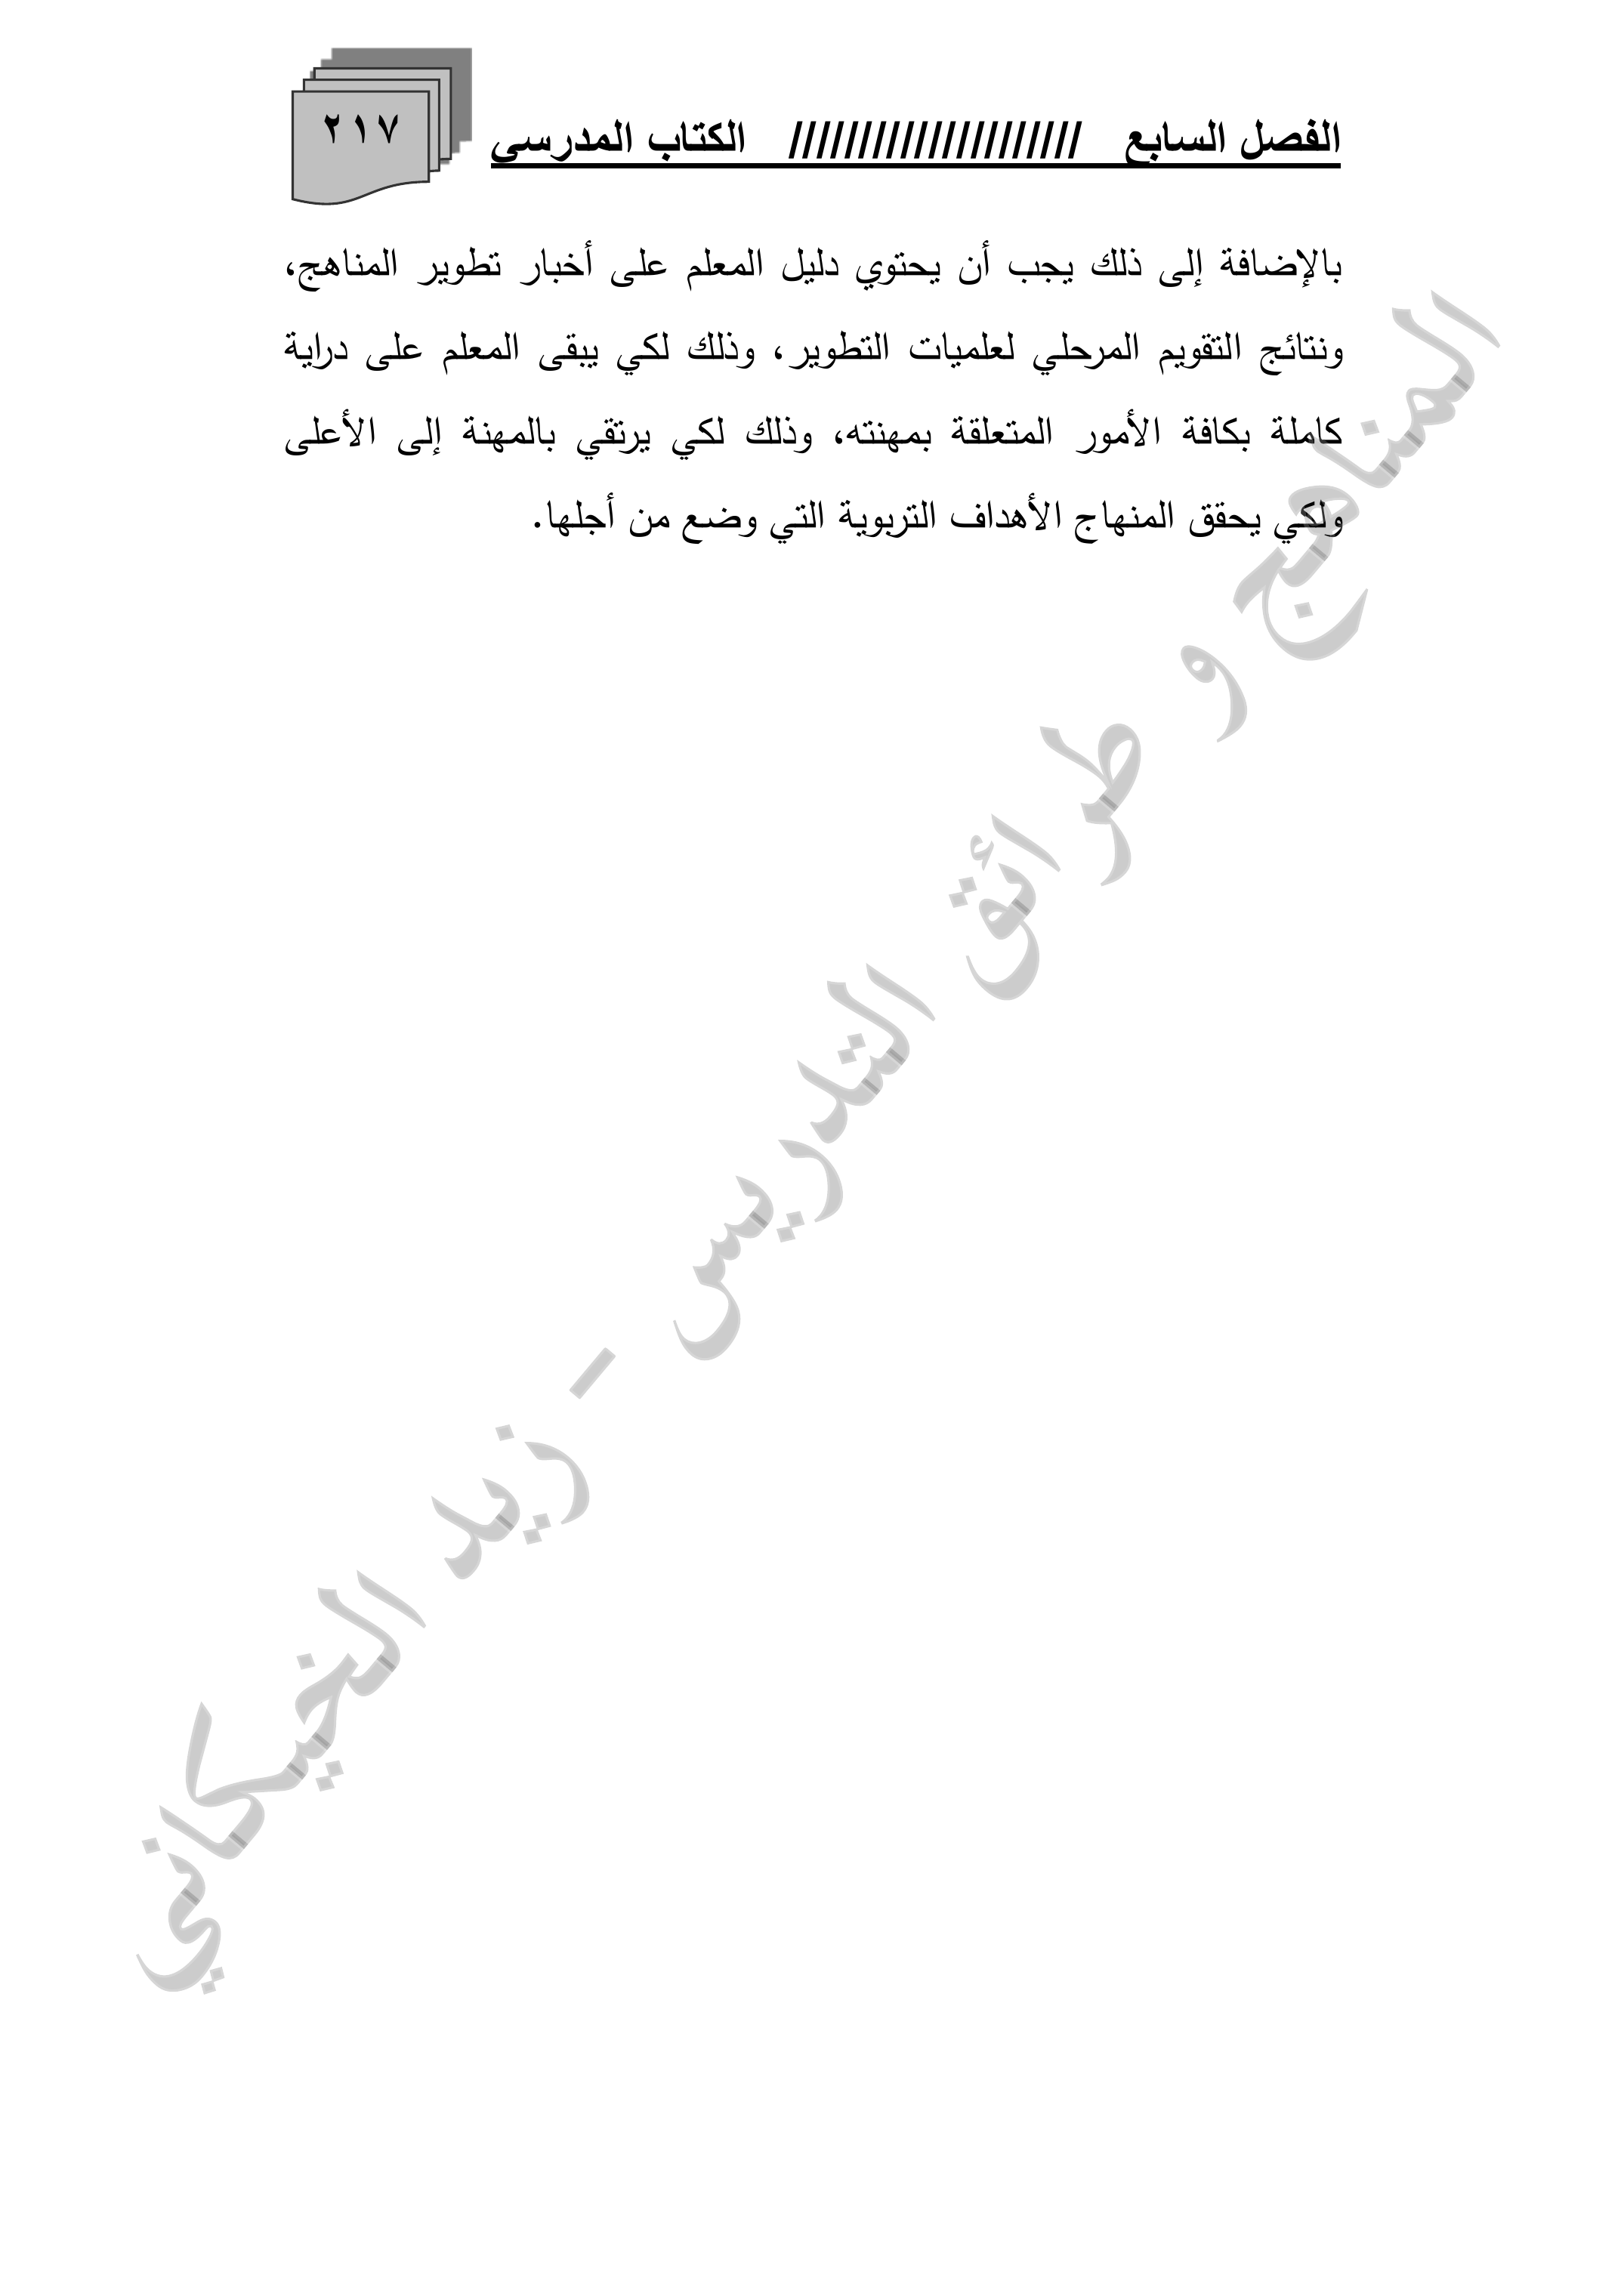 الفصل السابع ///////////////////// الكتاب المدرسي
٢١٧
بالإضافة إلى ذلك يجب أن يحتوي دليل المعلم على أخبار تطوير المناهج،
ونتائج التقويم المرحلي لعلميات التطوير، وذلك لكي يبقى المعلم على دراية
كاملة بكافة الأمور المتعلقة بمهنته، وذلك لكي يرتقي بالمهنة إلى الأعلى
ولكي يحقق المنهاج الأهداف التربوية التي وضع من أجلها.
المناهج و طرائق التدريس - زيد الخيكاني